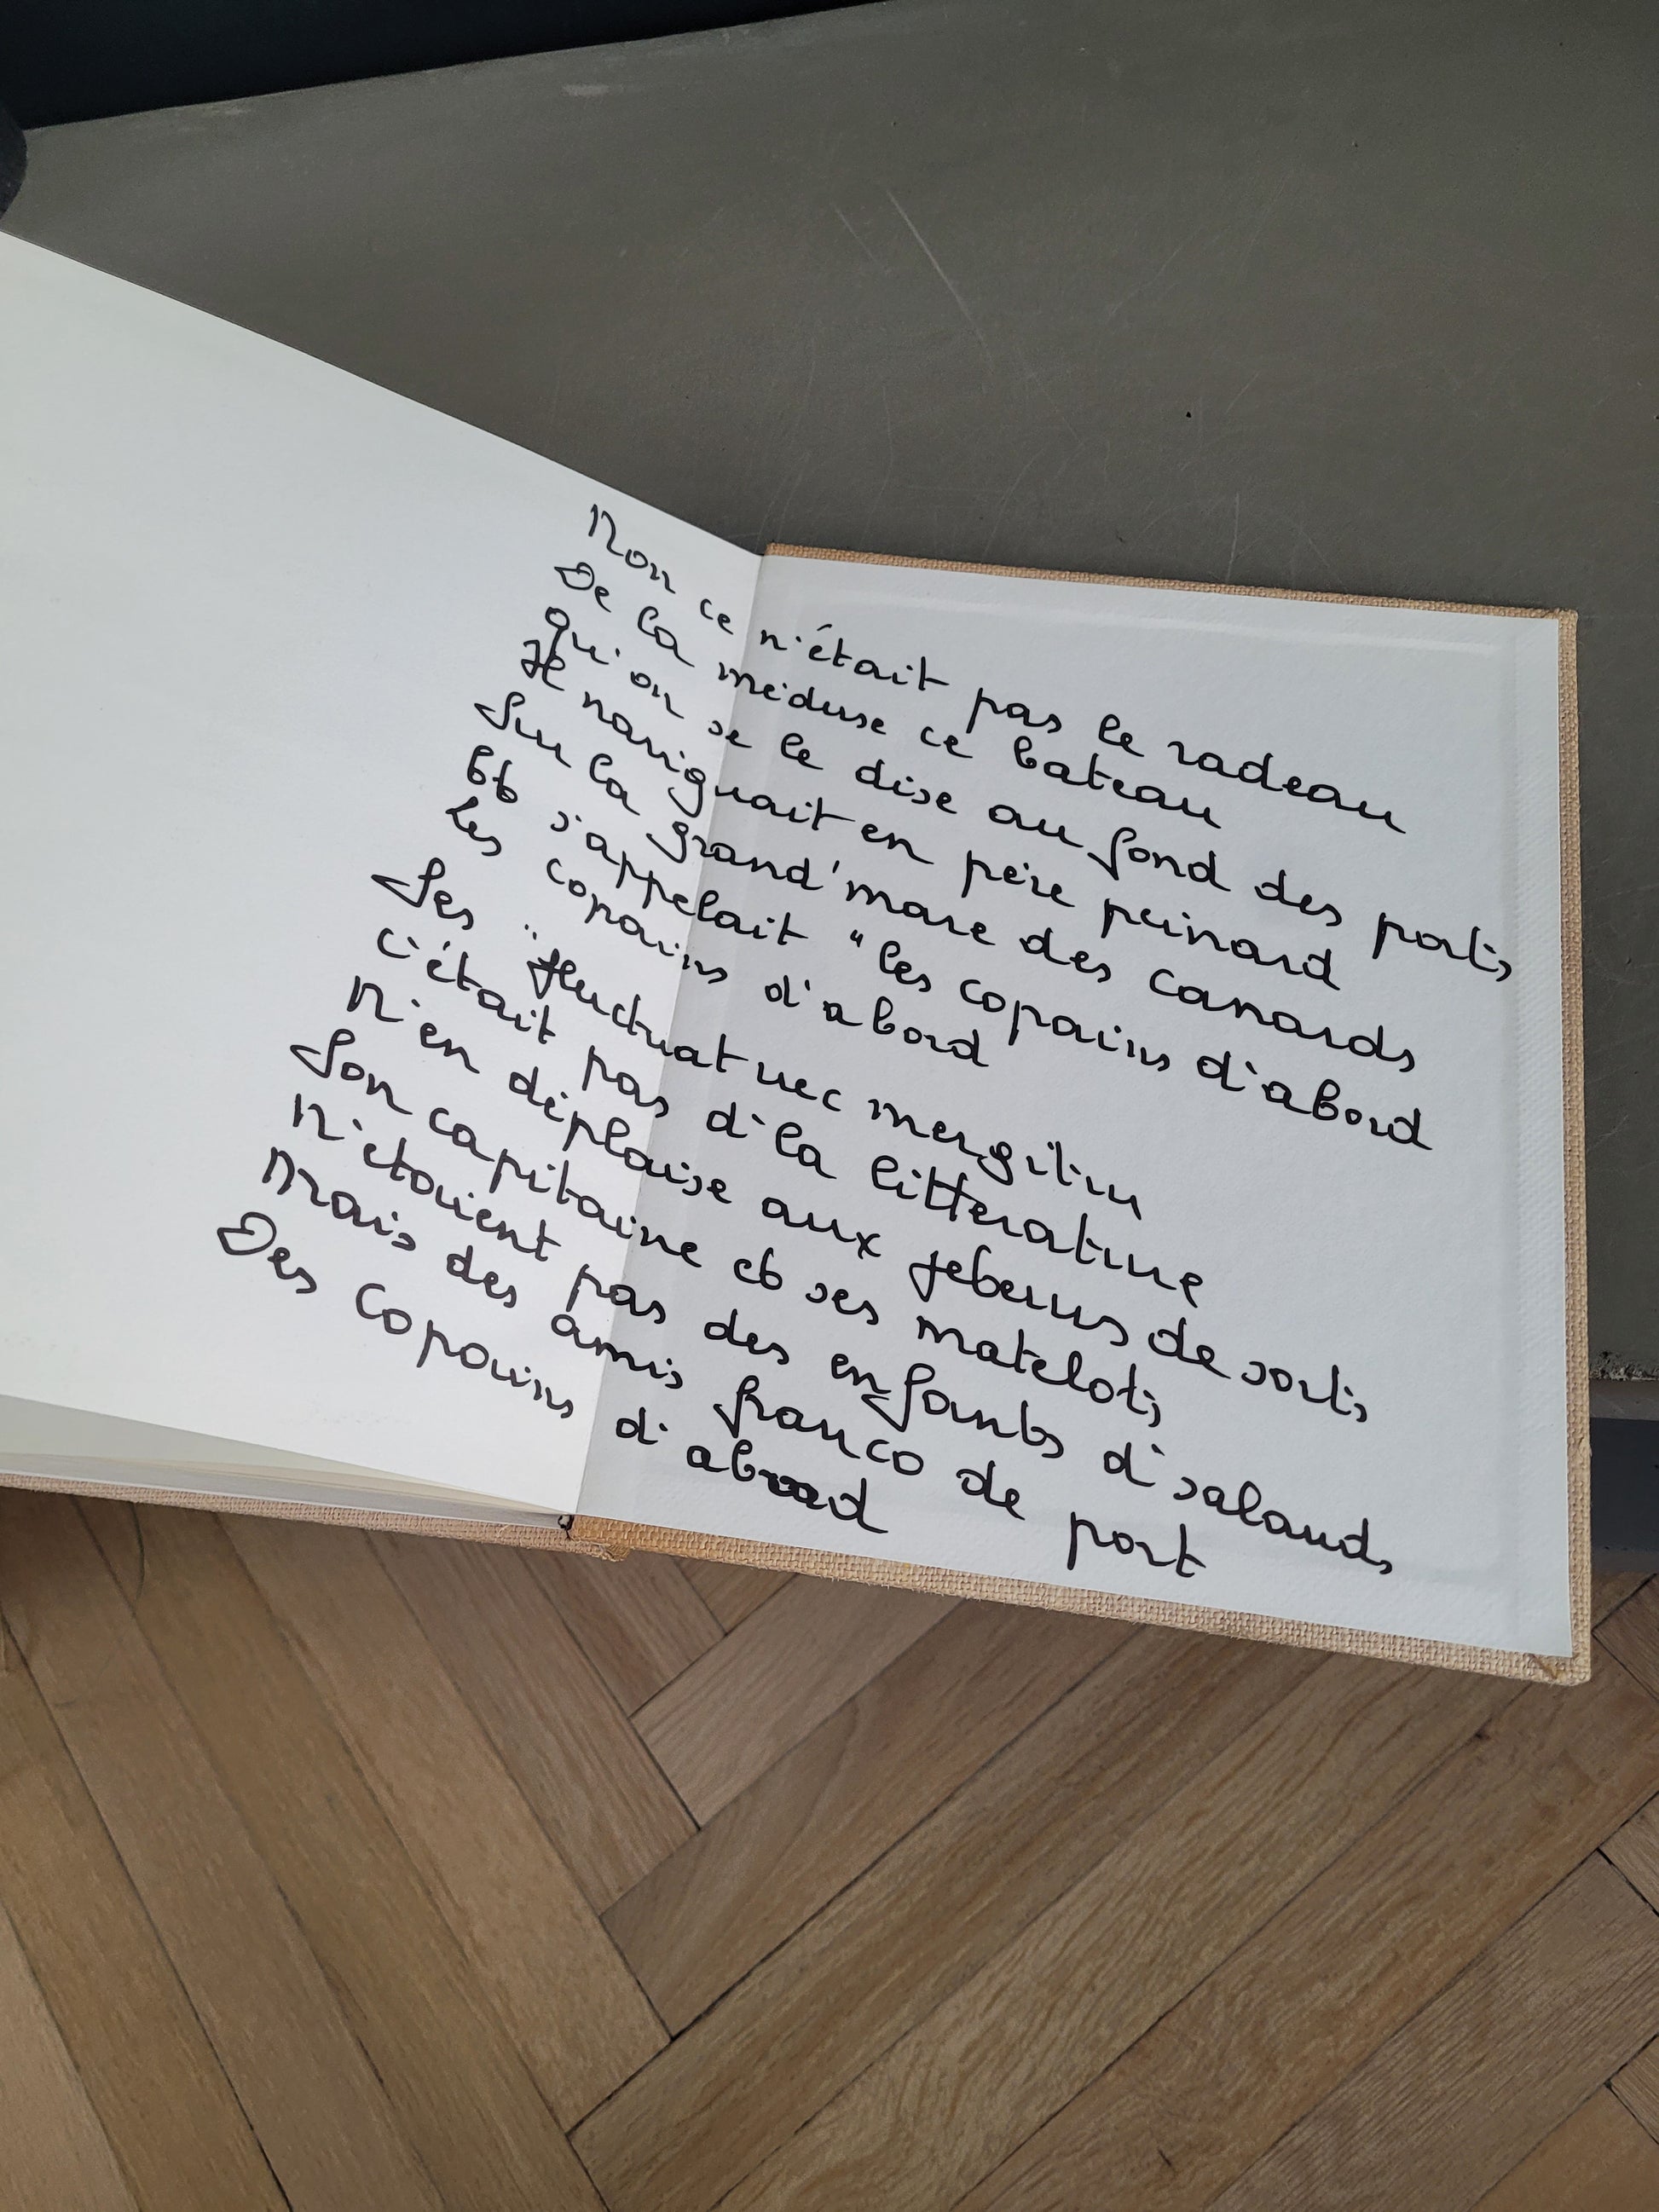 Non ce n'était pas le radeau
De la méduse ce bateau
Qu'on se le dise au fond des ports
Je naviguait en père peinard
Sur la grand'mare des canards
Et s'appelait "les copains d'abord
Les copains d'abord
Ses "fluctuat nec mergitur
C'était pas d'la litterature
N'en déplaise aux jeteurs de sorts
Son capitaine et ses matelots
N'étaient pas des enfants d'salauds
Mais des amis franco de port
Des copains d'abord